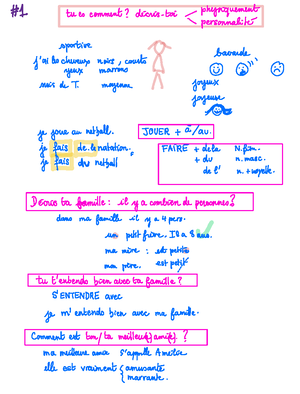 #1
tu es comment? décris-toi
physiquement
personnalité
sportive
bavarde
j'ai les cheveux noirs, courts
yeux marrons
suis de T. moyenne
joyeux
joyeuse
je joue au netball.
JOUER + à/au.
je fais de la natation.
je fais du netball
FAIRE + de la N. fém.
+ du n. masc.
+ de l' n. + voyelle.
Décris ta famille : il y a combien de personnes?
dans ma famille il y a 4 pers.
un petit frère. Il a 8 ans.
ma mère : est petite
mon père. est petit
tu t'entends bien avec ta famille?
S'ENTENDRE avec
je m'entends bien avec ma famille.
Comment est ton/ta meilleur(e) ami(e) ?
ma meilleure amie s'appelle Amélie
elle est vraiment amusante
marrante.